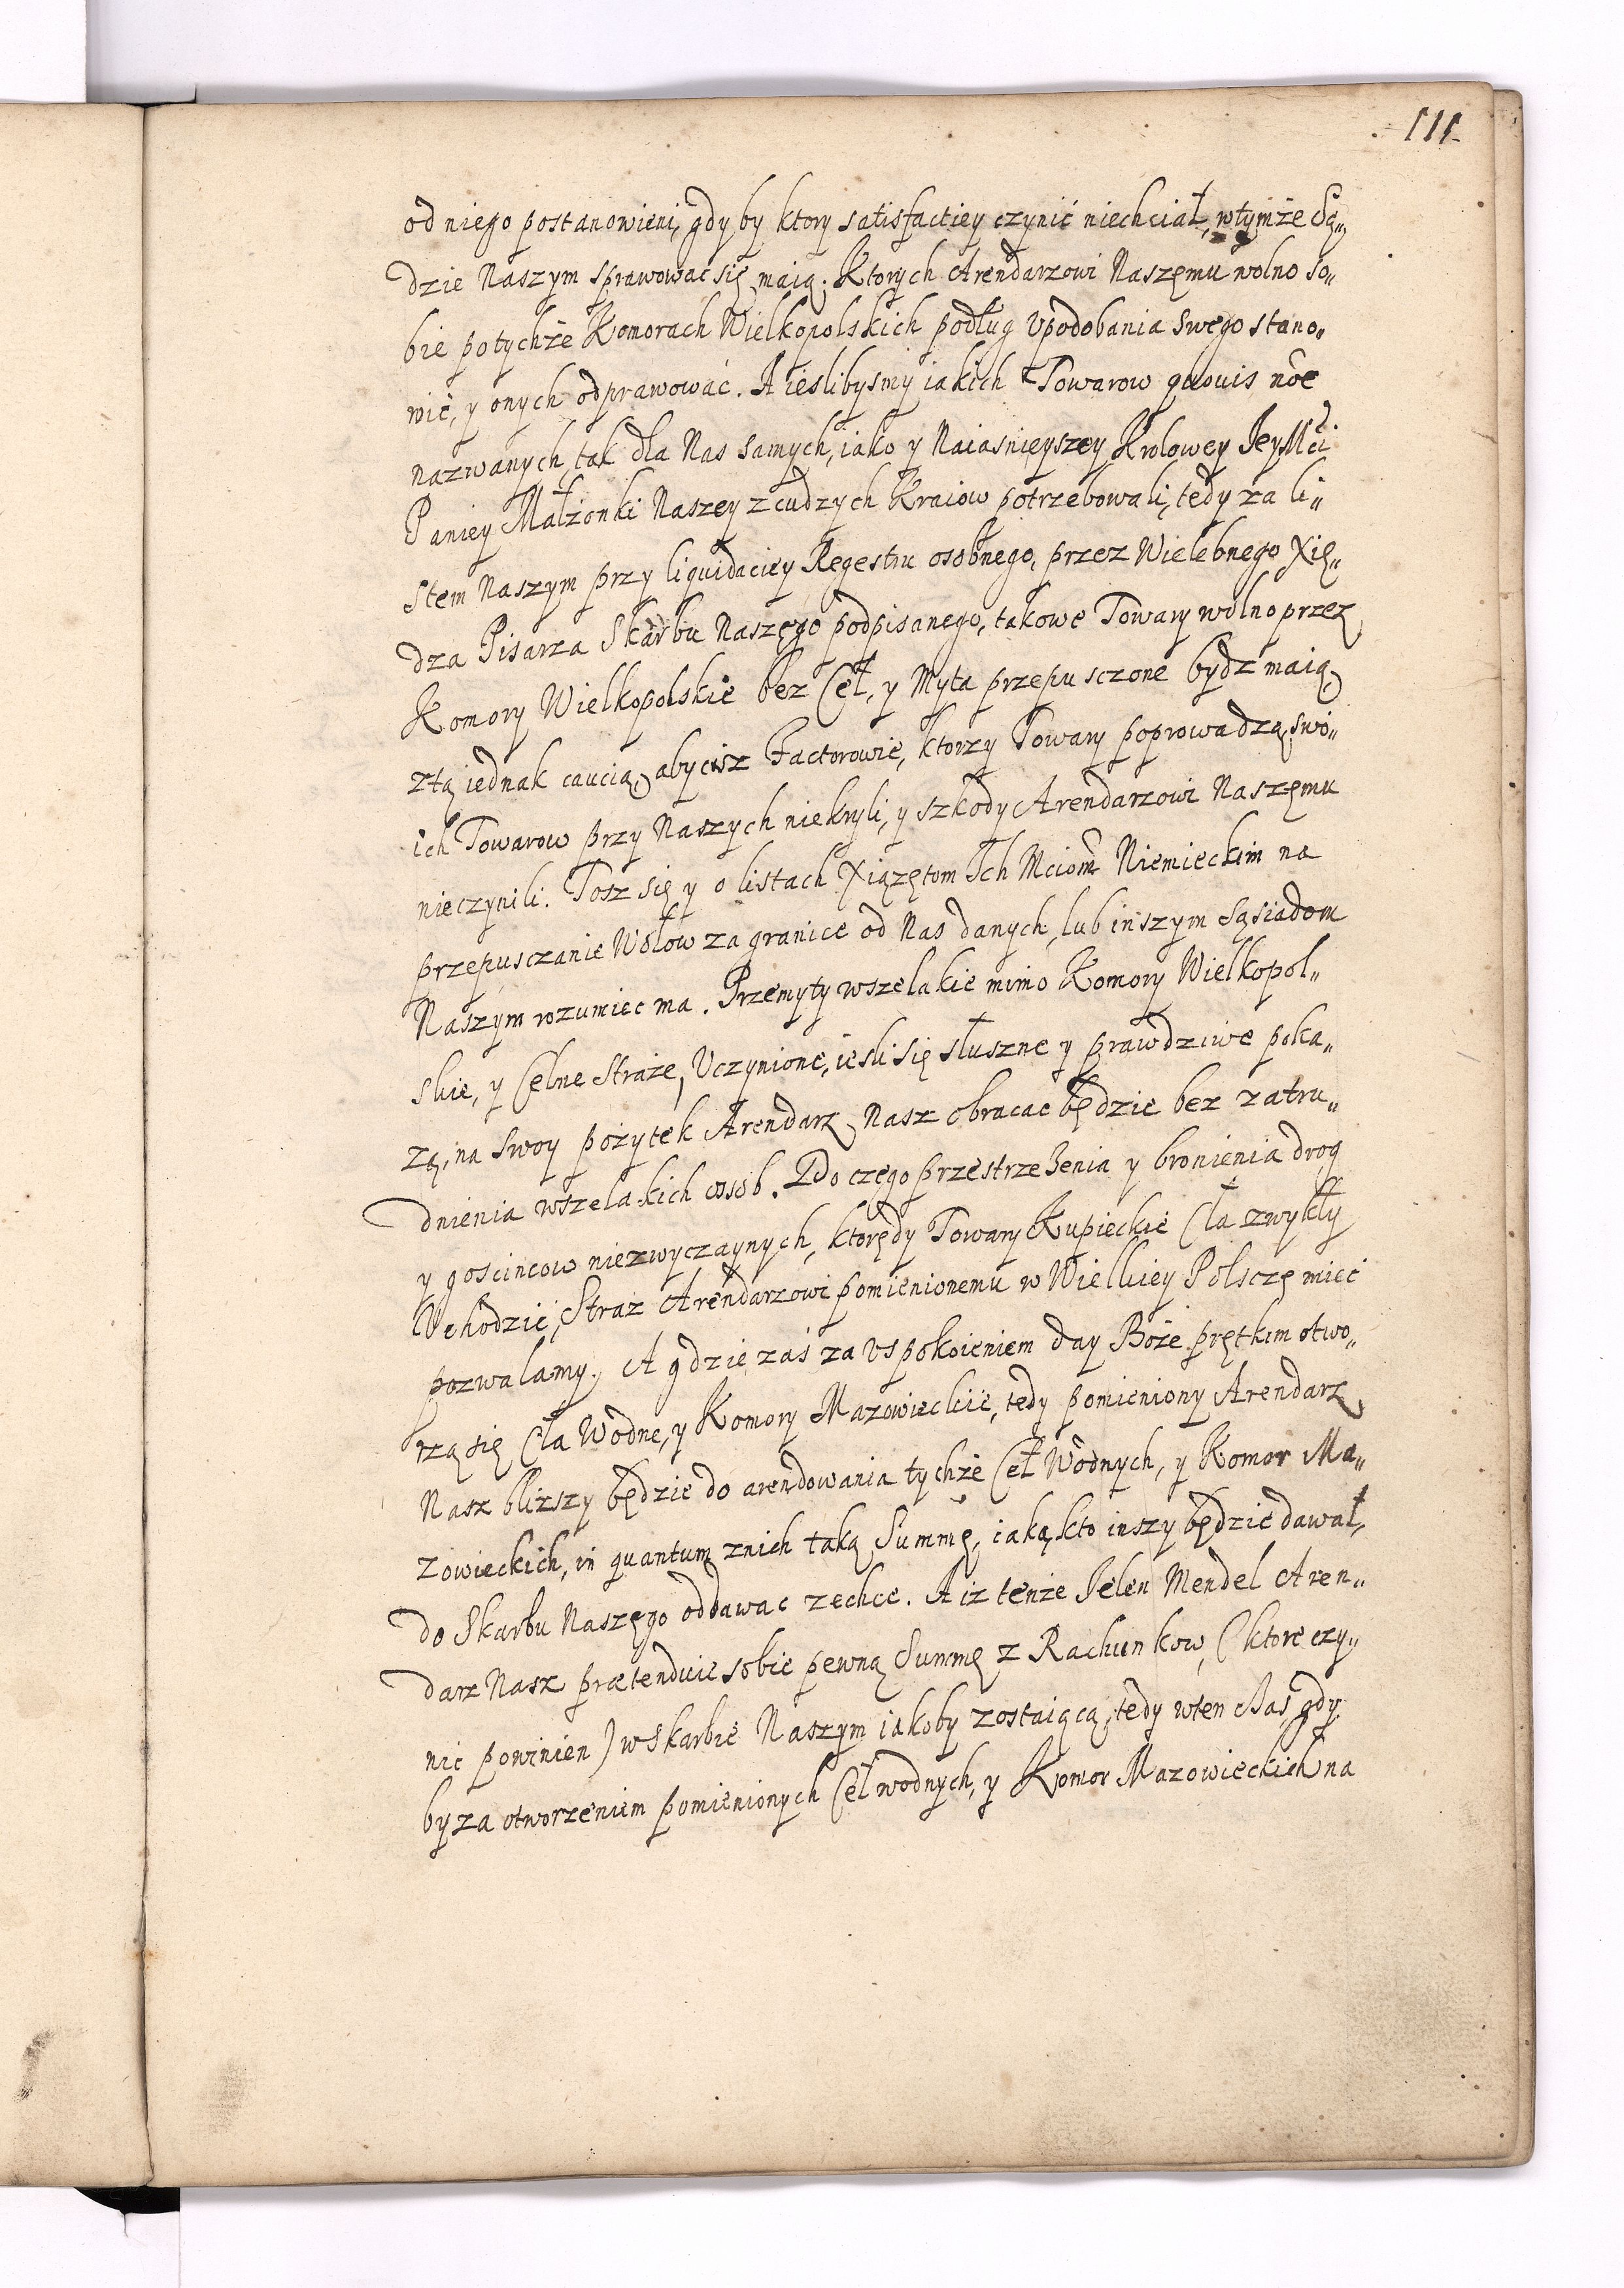 111
od niego postanowieni, gdyby ktory satisfactiey czynić niechciał, wtymże Są„
dzie Naszym sprawowac się maią. Ktorych Arendarzowi Naszemu wolno so„
bie potychże Komorach Wielkopolskich podług Vpodobania swego stano„
wić, y onych odprawować. A ieslibysmy iakich Towarow quouis nôe
nazwanych, tak dla Nas samych, iako y Naiasnieyszey Krolowey JeyMći
Paniey Małżonki Naszey z cudzych Kraiow potrzebowali, tedy za li„
stem Naszym przy liquidaciey Regestru osobnego, przez Wielebnego Xię„
dza Pisarza Skarbu Naszego podpisanego, takowe Towary wolno przez
Komory Wielkopolskie bez Ceł, y Myta przepusczone bydz maią,
ztą iednak caucią, aby cisz Factorowie, ktorzy Towary poprowadzą, swo„
ich Towarow przy Naszych niekryli, y szkody Arendarzowi Naszemu
nieczynili. Tosz się y o listach Xiązętom Ich Mciom Niemieckim na
przepusczanie Wołow za granice od Nas danych, lub inszym Sąsiadom
Naszym rozumiec ma. Przemyty wszelakie mimo Komory Wielkopol„
skie, y Celne Straże, Uczynione, iesli się słuszne y prawdziwe poka„
zą, na swoy pożytek Arendarz Nasz obracac będzie bez zatru„
dnienia wszelakich osob. Do czego przestrzeżenia y bronienia drog
y goscincow niezwyczaynych, ktorędy Towary Kupieckie Cła zwykły
Vchodzić, Straz Arendarzowi pomienionemu w Wielkiey Polscze mieć
pozwalamy. A gdzie zaś za vspokoieniem day Boże prętkim otwo„
rzą się Cła Wodne, y Komory Mazowieckie, tedy pomieniony Arendarz
Nasz bliższy będzie do arendowania tychże Ceł Wodnych, y Komor Ma„
zowieckich, in quantum znich taką Summę, iaką kto inszy będzie dawał,
do Skarbu Naszego oddawac zechce. A iz tenże Jelen Mendel Aren„
darz Nasz prætenduie sobie pewną Summę z Rachunkow, (ktore czy„
nic powinien) w Skarbie Naszym iakoby zostaiącą, tedy wten czas, gdy
by za otworzeniem pomienionych Ceł wodnych, y Komor Mazowieckich na